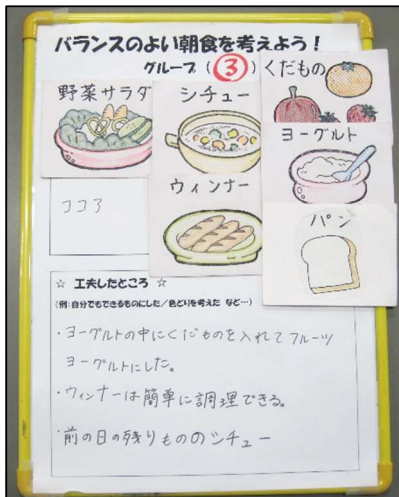 バランスのよい朝食を考えよう！
グループ（③）
くだもの
野菜サラダ
シチュー
ヨーグルト
ウィンナー
ココア
パン
☆ 工夫したところ ☆
(例：自分でもできるものにした／色どりを考えた など…)
・ヨーグルトの中にくだものを入れてフルーツ
ヨーグルトにした。
・ウィンナーは簡単に調理できる。
・前の日の残りもののシチュー